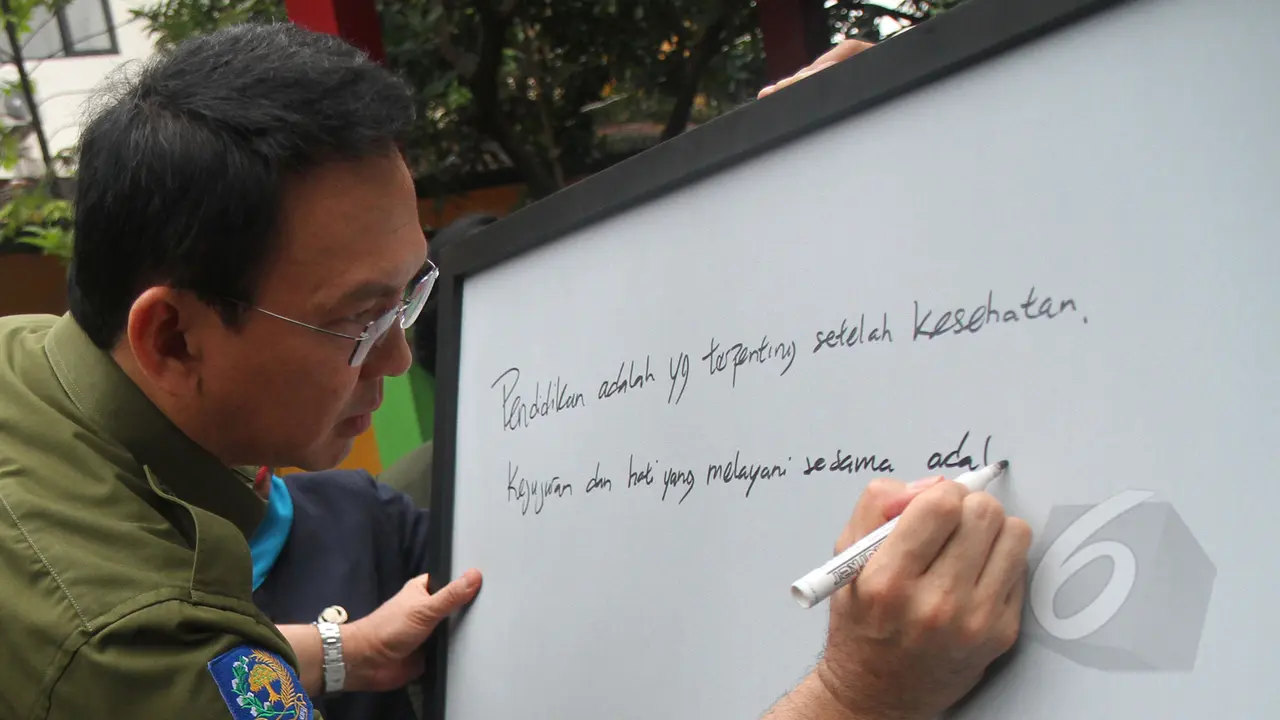 Pendidikan adalah yg terpenting setelah kesehatan.
Kejujuran dan hati yang melayani sesama adal
6